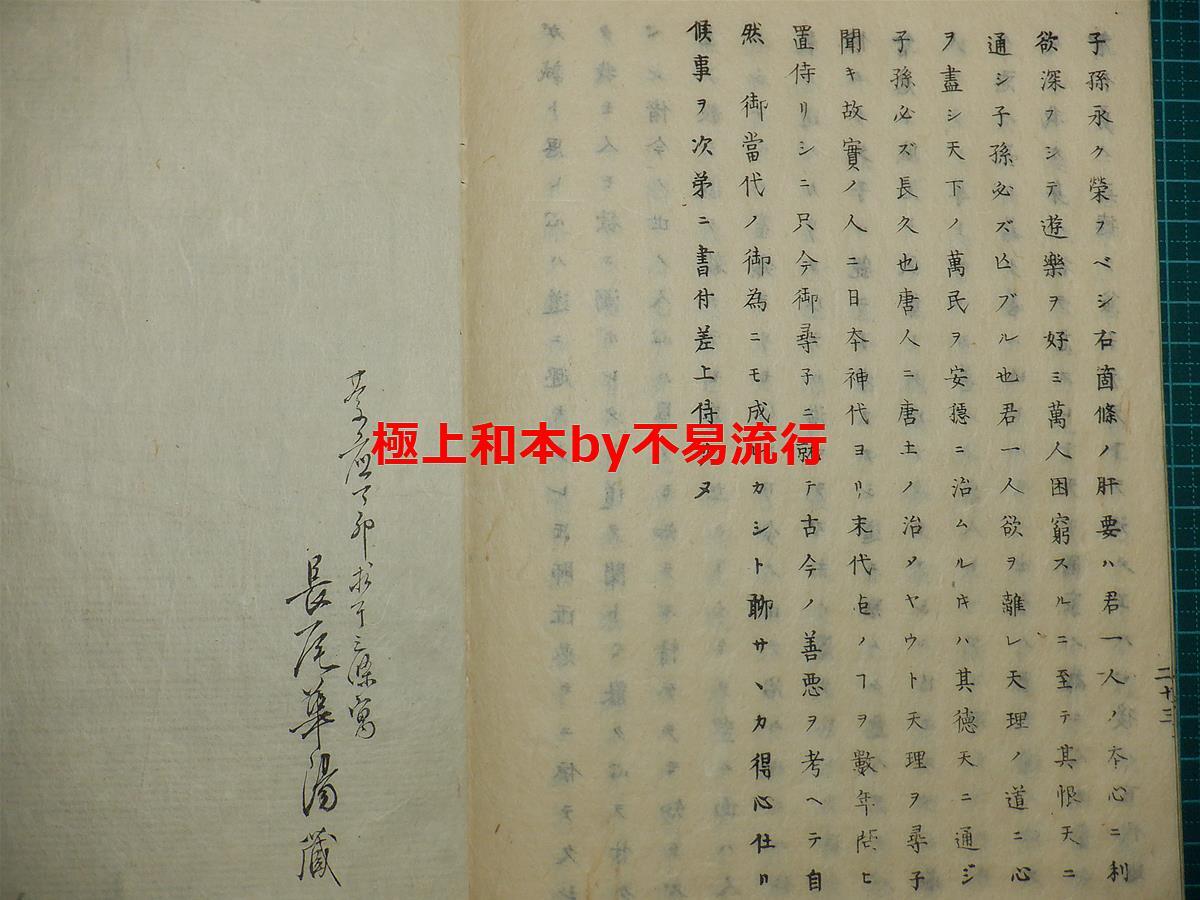 子孫永ク榮フベシ右箇條ノ肝要ハ君一人ノ本心ニ利
欲深ヲシテ遊樂ヲ好ミ萬人困窮スルニ至テ其恨天ニ
通シ子孫必ズ亾ブル也君一人欲ヲ離レ天理ノ道ニ心
ヲ盡シ天下ノ萬民ヲ安穏ニ治ムルキハ其德天ニ通ジ
子孫必ズ長久也唐人ニ唐土ノ治タヤウト天理ヲ尋子
聞キ故實ノ人ニ日本神代ヨリ末代迠ノヿヲ數年問ヒ
置侍リシニ只今御尋子ニ就テ古今ノ善悪ヲ考ヘテ自
然 御當代ノ御為ニモ成カシト聊サヽカ得心仕リ
候事ヲ次弟ニ書付差上侍ヌ
二十三
丁卯求于三條
長尾華陽藏
極上和本by不易流行